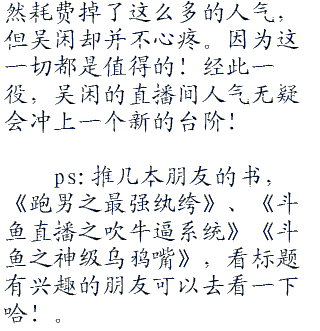 然耗费掉了这么多的人气，
但吴闲却并不心疼。因为这
一切都是值得的！经此一
役，吴闲的直播间人气无疑
会冲上一个新的台阶！
ps：推几本朋友的书，
《跑男之最强纨绔》、《斗
鱼直播之吹牛逼系统》《斗
鱼之神级乌鸦嘴》，看标题
有兴趣的朋友可以去看一下
哈！。